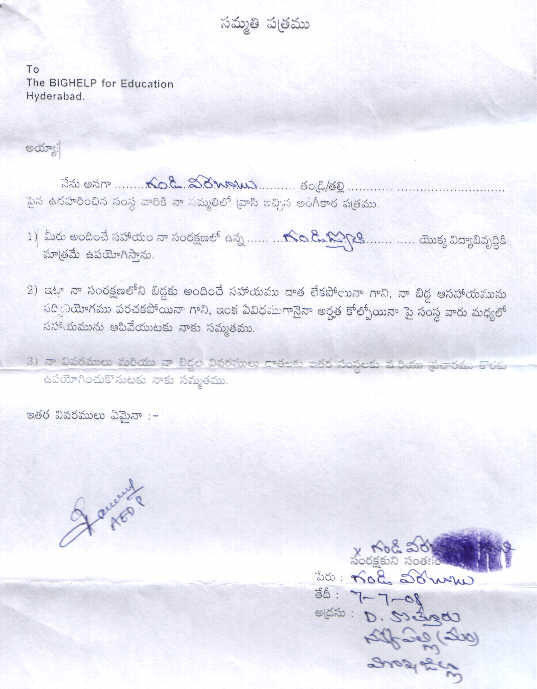 సమ్మతి పత్రము
To
The BIGHELP for Education
Hyderabad.
అయ్యా
నేను అనగా ........ గండి వీరబాబు .......... తండ్రి/తల్లి ............. ..............................
పైన ఉదహరించిన సంస్థ వారికి నా సమ్మతితో వ్రాసి ఇచ్చిన అంగీకార పత్రము.
1) మీరు అందించే సహాయం నా సంరక్షణలో ఉన్న ...... ... గండి ....... ..... యొక్క విద్యాభివృద్ధికి
మాత్రమే ఉపయోగిస్తాను.
2) ఇట్లా నా సంరక్షణలోని బిడ్డకు అందించే సహాయము దాత లేకపోయినా గాని, నా బిడ్డ ఆసహాయమును
సద్వినియోగము పరచకపోయినా గాని, ఇంక ఏవిధముగానైనా అర్హత కోల్పోయినా పై సంస్థ వారు మధ్యలో
సహాయమును ఆపివేయుటకు నాకు సమ్మతము.
3) నా వివరములు మరియు నా బిడ్డల వివరములు దాతలకు ఇతర సంస్థలకు మరియు ప్రచారము కొరకు
ఉపయోగించుకొనుటకు నాకు సమ్మతము.
ఇతర వివరములు ఏమైనా :-
AEDP
x గండి వీర
సంరక్షకుని సంతకం
పేరు : గండి వీరబాబు
తేదీ : 7-7-08
అడ్రసు : D. కొత్తూరు
(మం)
జిల్లా